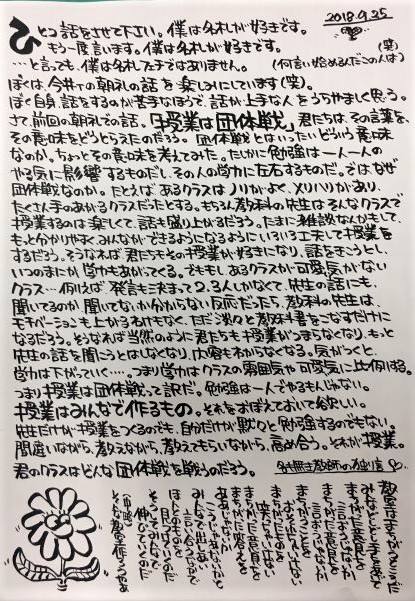 2018.9.25
ひとつ話をさせて下さい。僕は名札が好きです。
もう一度言います。僕は名札が好きです。
(笑)
…と言っても、僕は名札フェチではありません。
(何言い始めるんだこの人は)
ぼくは、今井Tの朝礼の話を楽しみにしています(笑)。
ぼく自身、話をするのが苦手なほうで、話が上手な人をうらやましく思う。
さて、前回の朝礼での話。「授業は団体戦」君たちは、その言葉を、
その意味をどうとらえたのだろう。団体戦とはいったいどういう意味
なのか。ちょっとその意味を考えてみた。たしかに勉強は一人一人の
やる気に影響するものだし、その人の学力に左右するものだ。では、なぜ
団体戦なのか。たとえばあるクラスはノリがよく、メリハリがあり、
たくさん手のあがるクラスだったとする。もちろん教科の先生はそんなクラスで
授業するのは楽しくて、話も盛り上がるだろう。たまに雑談なんかもして、
もっと分かりやすく、みんなができるようになるようにいろいろ工夫して授業を
するだろう。そうなれば、君たちもその授業が好きになり、話をきこうとし、
いつのまにか学力もあがってくる。でももしあるクラスが可愛気がない
クラス…例えば発言も決まって2,3人しかなくて、先生の話にも、
聞いてるのか、聞いてないか分からない反応だったら、教科の先生は、
モチベーションも上がるわけもなく、ただ淡々と教科書をこなすだけに
なるだろう。そうなれば当然のように君たちも授業がつまらなくなり、もっと
先生の話を聞こうとはしなくなり、内容もわからなくなる。気がつくと、
学力は下がっていく…。つまり学力はクラスの雰囲気や可愛気に比例する。
つまり授業は団体戦って訳だ。勉強は一人でやるもんじゃない。
授業はみんなで作るもの。それをおぼえておいて欲しい。
先生だけが授業をつくるのでも、自分だけが黙々と勉強するのでもない。
間違いながら、教えながら、教えてもらいながら、高め合う。それが授業。
君のクラスはどんな団体戦を戦うのだろう。
名も無き教師の独り言
教室はまちがうところだ
みんなどしどし手をあげて
まちがった意見を
言おうじゃないか
まちがった答えを
言おうじゃないか
まちがうことを
おそれちゃいけない
まちがったものを
ワラっちゃいけない
まちがった意見を
まちがった答えを
ああじゃないか
こうじゃないかと
みんなで出しあい
言い合うなかで
ほんとのものを
見つけていくのだ
そうしてみんなで
伸びていくのだ
そんな教室作ろうやあ